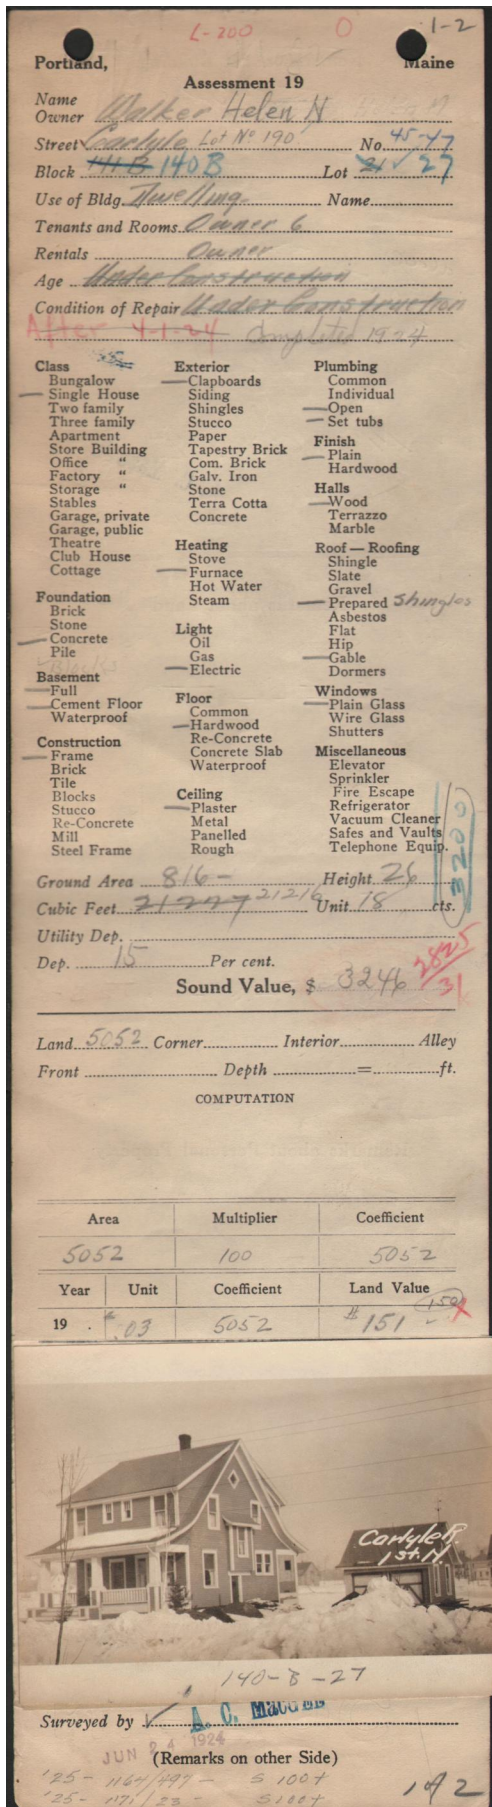 L-200 0 1-2
Portland, Maine
Assessment 19
Name
Owner Walker Helen N
Street Carlyle Lot No 190 No. 45-47
Block 141 B 140 B Lot 21 27
Use of Bldg. Dwelling Name
Tenants and Rooms Owner 6
Rentals Owner
Age Under Construction
Condition of Repair Under Construction
After 4-1-24 Completed 1924
Class
Bungalow
Single House
Two family
Three family
Apartment
Store Building
Office "
Factory "
Storage "
Stables
Garage, private
Garage, public
Theatre
Club House
Cottage
Foundation
Brick
Stone
Concrete
Pile
Blocks
Basement
Full
Cement Floor
Waterproof
Construction
Frame
Brick
Tile
Blocks
Stucco
Re-Concrete
Mill
Steel Frame
Exterior
Clapboards
Siding
Shingles
Stucco
Paper
Tapestry Brick
Com. Brick
Galv. Iron
Stone
Terra Cotta
Concrete
Heating
Stove
Furnace
Hot Water
Steam
Light
Oil
Gas
Electric
Floor
Common
Hardwood
Re-Concrete
Concrete Slab
Waterproof
Ceiling
Plaster
Metal
Panelled
Rough
Plumbing
Common
Individual
Open
Set tubs
Finish
Plain
Hardwood
Halls
Wood
Terrazzo
Marble
Roof — Roofing
Shingle
Slate
Gravel
Prepared Shingles
Asbestos
Flat
Hip
Gable
Dormers
Windows
Plain Glass
Wire Glass
Shutters
Miscellaneous
Elevator
Sprinkler
Fire Escape
Refrigerator
Vacuum Cleaner
Safes and Vaults
Telephone Equip.
3200
Ground Area 816- Height 26
Cubic Feet 21277 21216 Unit 18 cts.
Utility Dep.
Dep. 15 Per cent.
2825
31
Sound Value, $ 3246
Land 5052 Corner Interior Alley
Front Depth = ft.
COMPUTATION
Area Multiplier Coefficient
5052 100 5052
Year Unit Coefficient Land Value
19 . $.03 5052 $151 150
Carlyle R.
1st. N.
140-B-27
Surveyed by A. C. MacGEE
JUN 24 1924
(Remarks on other Side)
'25- 1164/497- S 100+
'25- 1171/23- S 100+
1 of 2